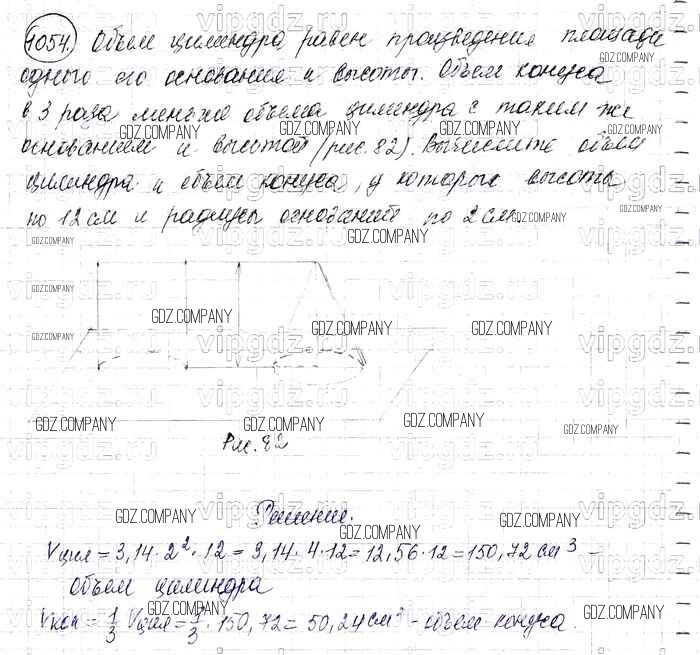 1054. Объем цилиндра равен произведению площади
одного его основания и высоты. Объем конуса
в 3 раза меньше объема цилиндра с таким же
основанием и высотой (рис. 82). Вычислите объем
цилиндра и объем конуса, у которых высоты
по 12 см и радиусы оснований по 2 см.
Рис. 82
Решение.
Vцил = 3,14 · 2² · 12 = 3,14 · 4 · 12 = 12,56 · 12 = 150,72 см³ –
объем цилиндра
Vкон = 1/3 Vцил = 1/3 · 150,72 = 50,24 см³ – объем конуса.
GDZ.COMPANY
vipgdz.ru